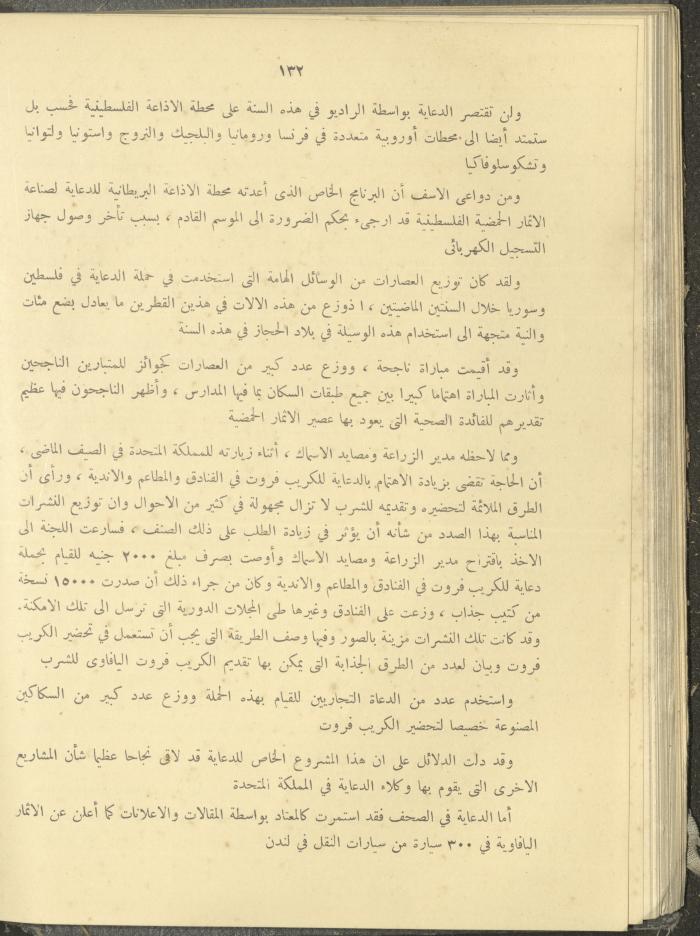 ١٣٢
ولن تقتصر الدعاية بواسطة الراديو في هذه السنة على محطة الاذاعة الفلسطينية فحسب بل
ستمتد أيضا الى محطات أوروبية متعددة في فرنسا ورومانيا والبلجيك والنروج واستونيا ولتوانيا
وتشكوسلوفاكيا
ومن دواعى الاسف أن البرنامج الخاص الذى أعدته محطة الاذاعة البريطانية للدعاية لصناعة
الاثمار الحمضية الفلسطينية قد ارجىء بحكم الضرورة الى الموسم القادم ، بسبب تأخر وصول جهاز
التسجيل الكهربائى
ولقد كان توزيع العصارات من الوسائل الهامة التى استخدمت في حملة الدعاية في فلسطين
وسوريا خلال السنتين الماضيتين ، ا ذوزع من هذه الالات في هذين القطرين ما يعادل بضع مئات
والنية متجهة الى استخدام هذه الوسيلة في بلاد الحجاز في هذه السنة
وقد أقيمت مباراة ناجحة ، ووزع عدد كبير من العصارات كجوائز للمتبارين الناجحين
وأثارت المباراة اهتماما كبيرا بين جميع طبقات السكان بما فيها المدارس ، وأظهر الناجحون فيها عظيم
تقديرهم للفائدة الصحية التى يعود بها عصير الاثمار الحمضية
ومما لاحظه مدير الزراعة ومصايد الاسماك ، أثناء زيارته للمملكة المتحدة في الصيف الماضى ،
أن الحاجة تقضى بزيادة الاهتمام بالدعاية للكريب فروت في الفنادق والمطاعم والاندية ، ورأى أن
الطرق الملائمة لتحضيره وتقديمه للشرب لا تزال مجهولة في كثير من الاحوال وان توزيع النشرات
المناسبة بهذا الصدد من شأنه أن يؤثر في زيادة الطلب على ذلك الصنف ، فسارعت اللجنة الى
الاخذ باقتراح مدير الزراعة ومصايد الاسماك وأوصت بصرف مبلغ ٢٠٠٠ جنيه للقيام بحملة
دعاية للكريب فروت في الفنادق والمطاعم والاندية وكان من جراء ذلك أن صدرت ١٥٠٠٠ نسخة
من كتيب جذاب ، وزعت على الفنادق وغيرها طى المجلات الدورية التى ترسل الى تلك الامكنة.
وقد كانت تلك النشرات مزينة بالصور وفيها وصف الطريقة التى يجب أن تستعمل في تحضير الكريب
فروت وبيان لعدد من الطرق الجذابة التى يمكن بها تقديم الكريب فروت اليافاوى للشرب
واستخدم عدد من الدعاة التجاريين للقيام بهذه الحملة ووزع عدد كبير من السكاكين
المصنوعة خصيصا لتحضير الكريب فروت
وقد دلت الدلائل على ان هذا المشروع الخاص للدعاية قد لاقى نجاحا عظيما شأن المشاريع
الاخرى التى يقوم بها وكلاء الدعاية في المملكة المتحدة
أما الدعاية في الصحف فقد استمرت كالمعتاد بواسطة المقالات والاعلانات كما أعلن عن الاثمار
اليافاوية في ٣٠٠ سيارة من سيارات النقل في لندن